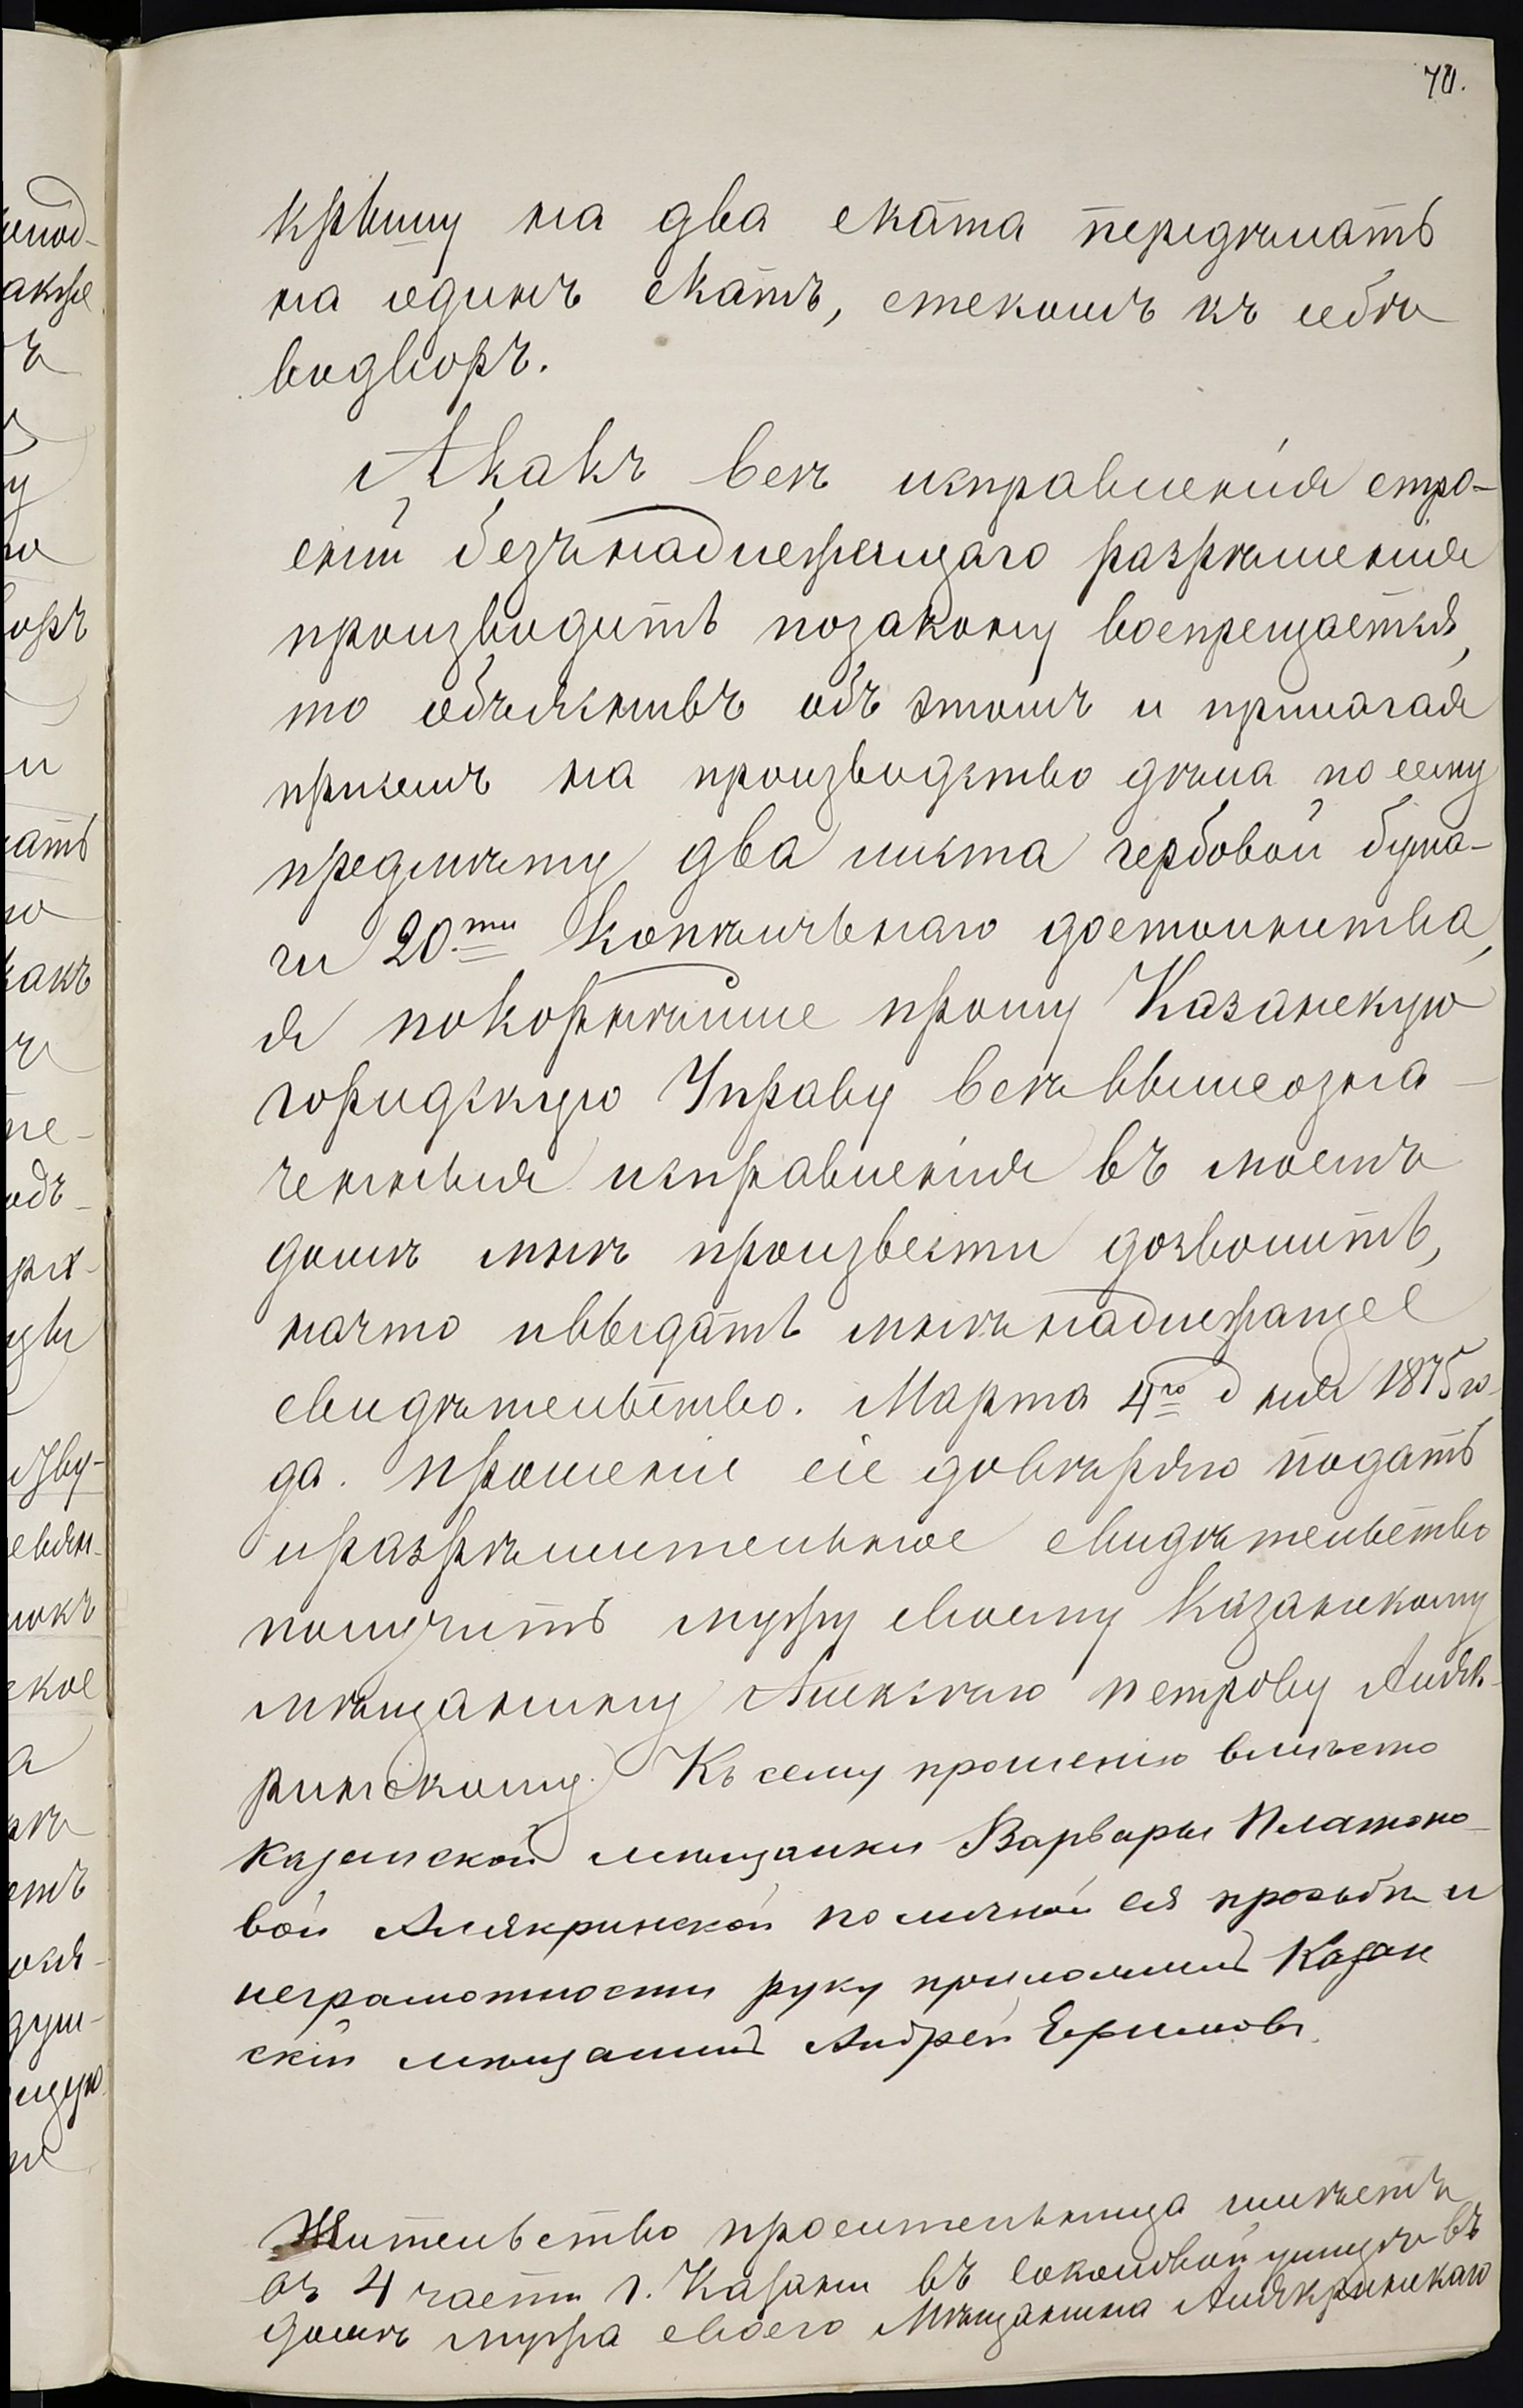 70.
крышу на два ската передѣлать
на одинъ скатъ, стекомъ къ себѣ
водворъ.
Акакъ всѣ исправленія стро-
еній безънадлежащаго разрѣшенія
производить позакону воспрещается,
то объяснивъ объ этомъ и прилагая
присемъ на производство дѣла по сему
предмѣту два листа гербовой бума-
ги 20ти Копѣичьнаго достоинства,
я покорнѣише прошу Казанскую
городскую Управу всѣ вышеозна-
ченныя исправленія въ моемъ
домѣ мнѣ произвести дозволить,
начто ивыдать мнѣ надлежащее
свидѣтельство. Марта 4го дня 1875 го-
да. прошеніе сіе довѣряю подать
иразрѣшительное свидѣтельство
получить мужу своему Казанскому
мѣщанину Алексѣю петрову Аляк-
ринскому. Къ сему прошенію вмѣсто
казанской мѣщанки Варвары Платоно-
вой Алякринской по личной ея прозьбѣ и
неграмотности руку приложилъ Казан
скій мѣщанинъ Андрей Ефимовъ
Жительство просительница имѣетъ
въ 4 части г. Казани въ соколовой улицѣ въ
домѣ мужа своего Мѣщанина Алякринскаго